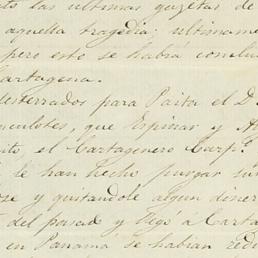 to las ultimas gazetas de
aquella tragedia; ultimame
pero esto se habia conclui
Cartagena.
desterrados para Paita el D.
nculotes, que Espinar y A
ito el Cartagenero Carp.
le han hecho purgar su
se y quitandole algun diner
del pasado y llegó a Carta
en Panama se habian redu